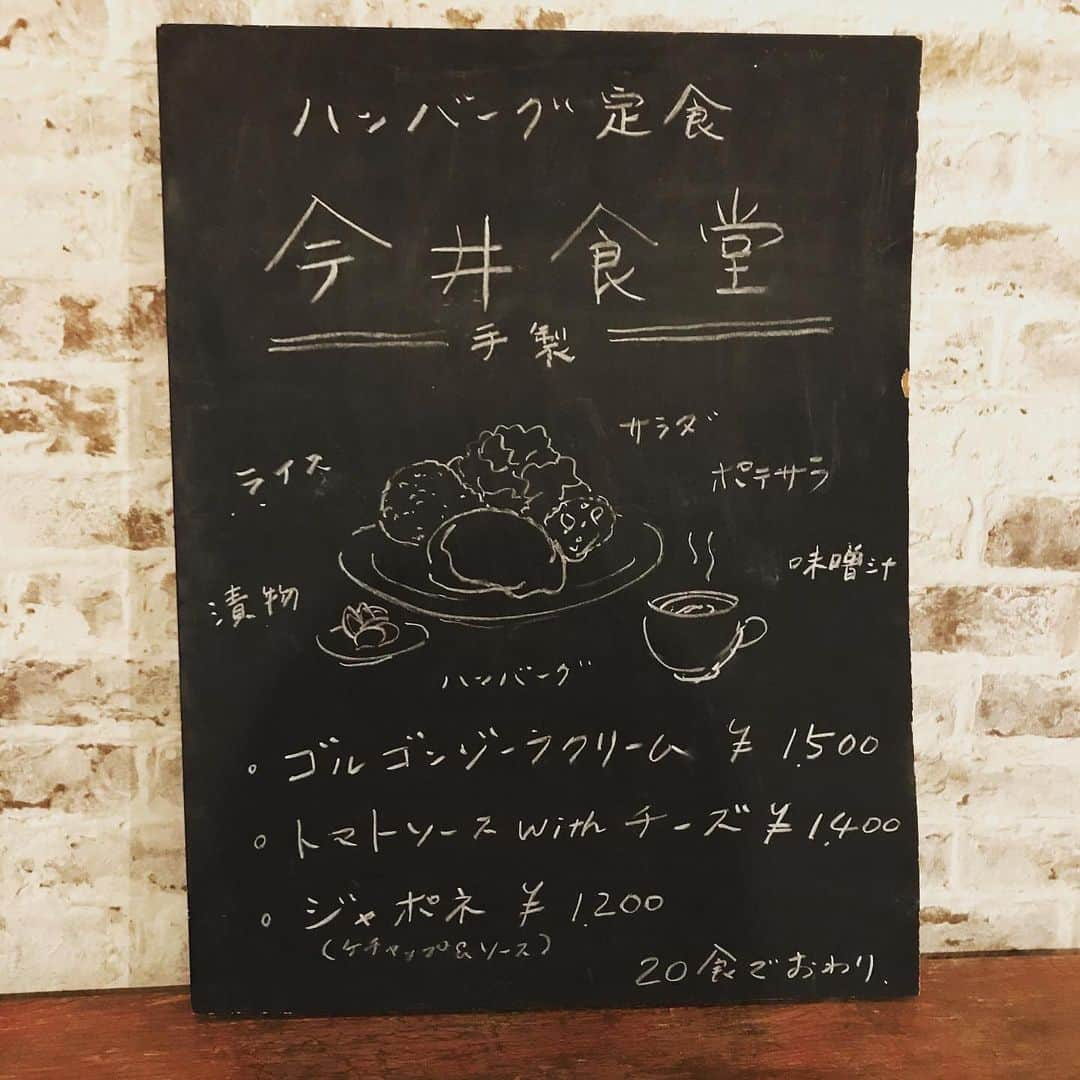 ハンバーグ定食
今井食堂
手製
サラダ
ライス
ポテサラ
味噌汁
漬物
ハンバーグ
。ゴルゴンゾーラクリーム ¥1,500
。トマトソース with チーズ ¥1,400
。ジャポネ ¥1,200
(ケチャップ&ソース)
20食でおわり.